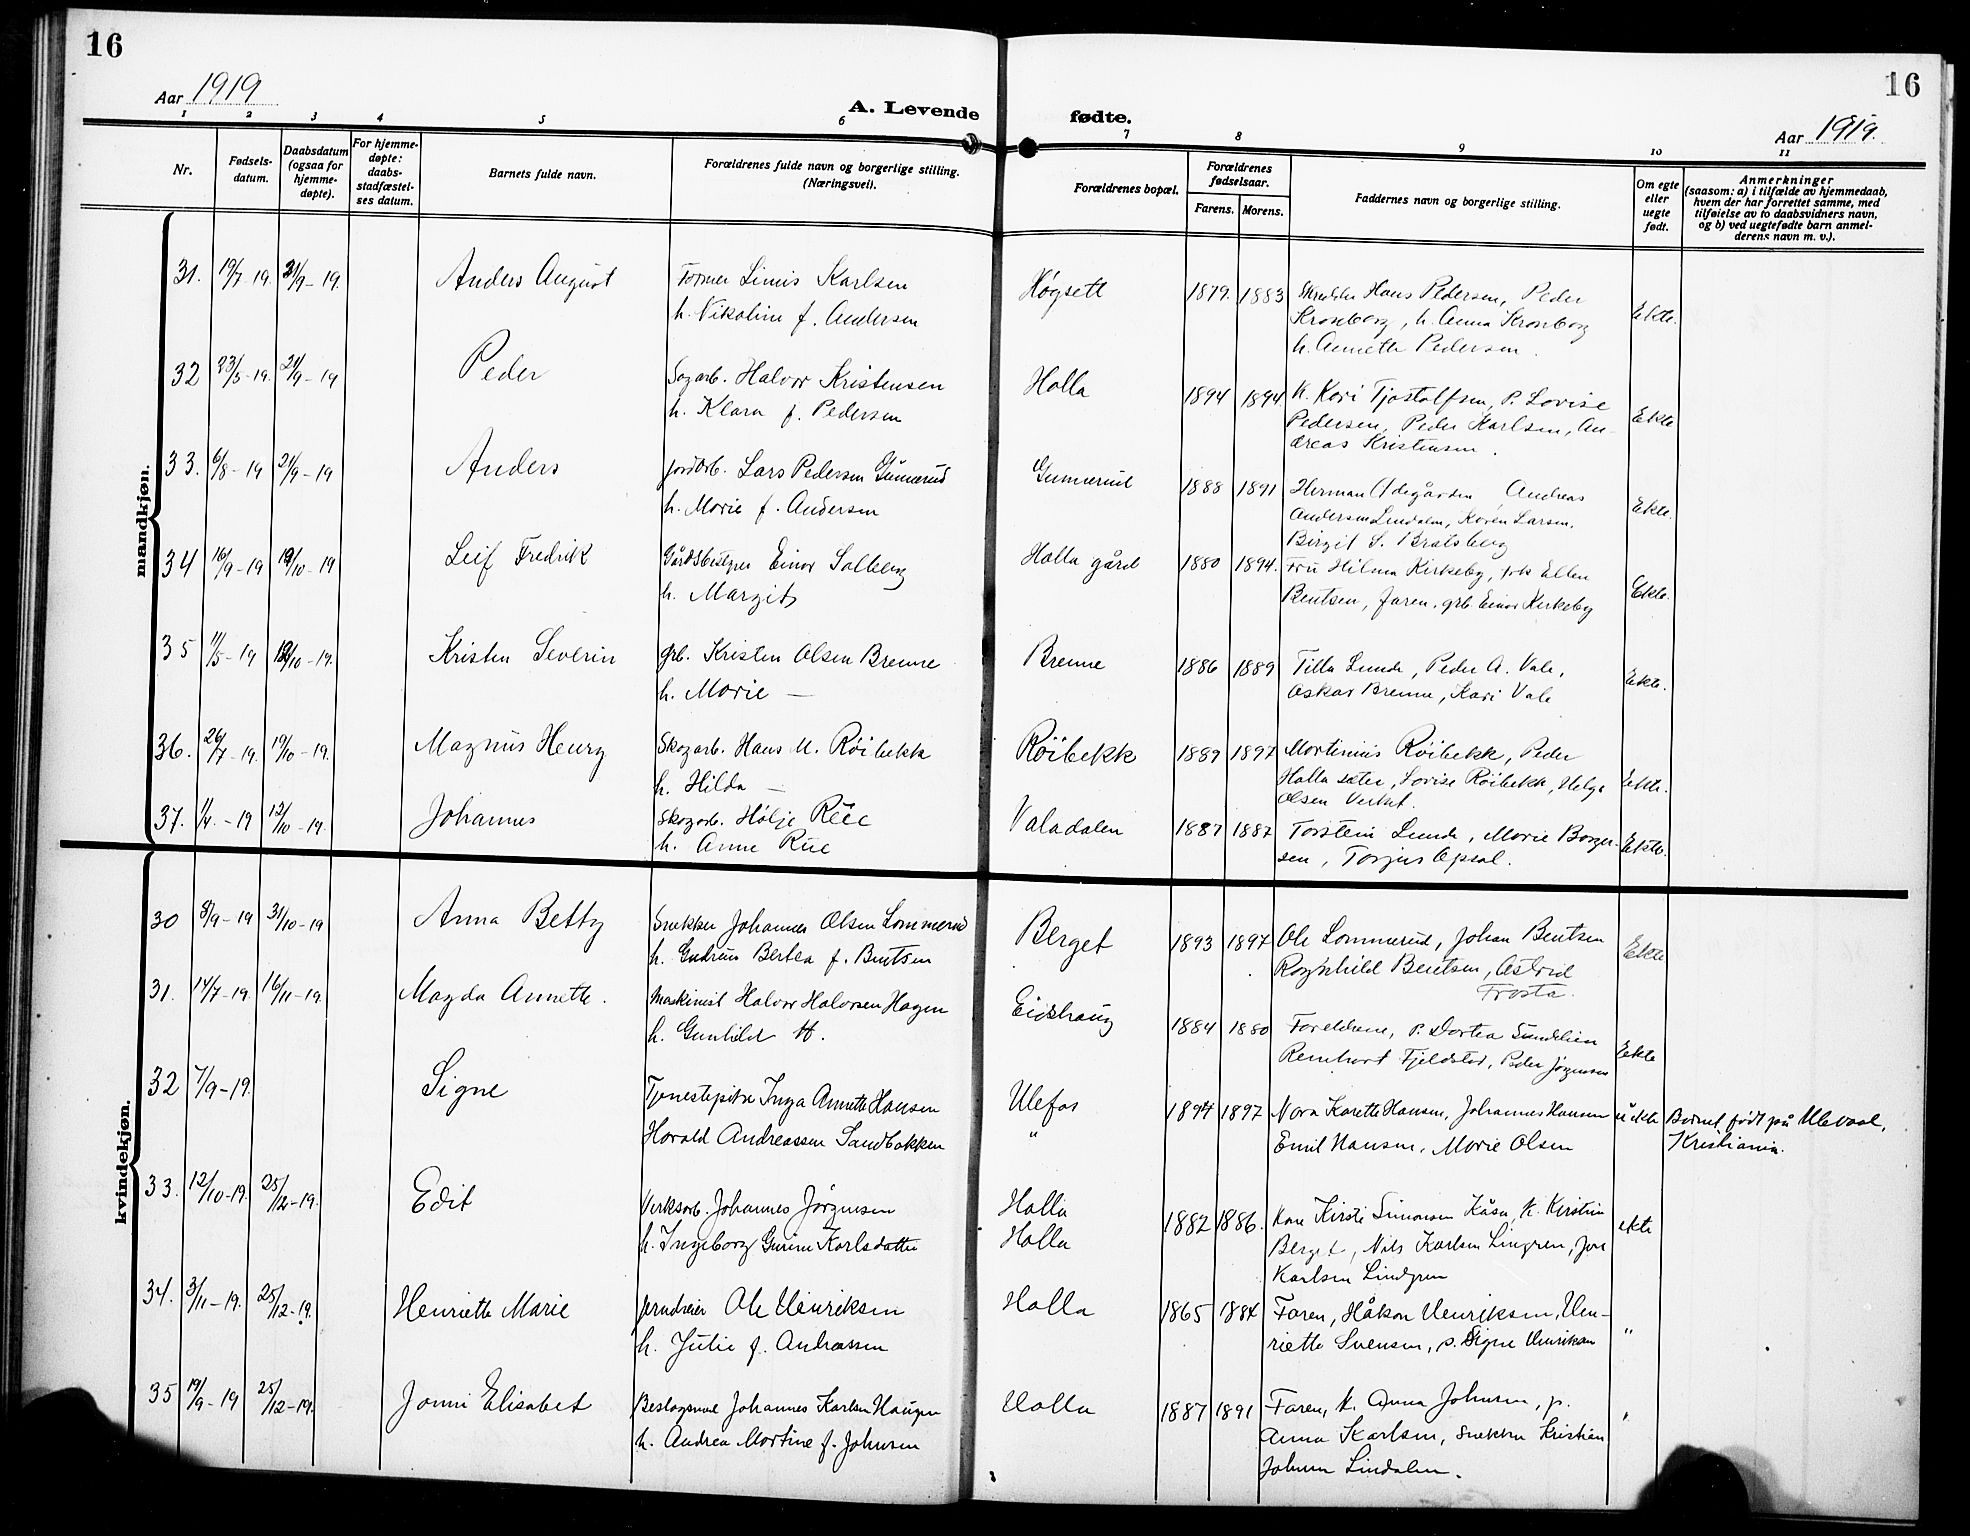 16
16
Aar 1919
A. Levende
fødte.
Aar 1919.
1 2 3 4 5 6 7 8 9 10 11
Nr.
Fødsels-
datum.
Daabsdatum
(ogsaa for
hjemme-
døpte).
For hjemme-
døpte:
daabs-
stadfæstel-
ses datum.
Barnets fulde navn.
Forældrenes fulde navn og borgerlige stilling.
(Næringsvei).
Forældrenes bopæl.
Forældrenes
fødselsaar.
Farens. Morens.
Faddernes navn og borgerlige stilling.
Om egte
eller
uegte
født.
Anmerkninger
(saasom: a) i tilfælde av hjemmedaab,
hvem der har forrettet samme, med
tilføielse av to daabsvidners navn,
og b) ved uegtefødte barn anmel-
derens navn m. v.).
mandkjøn.
31. 19/7-19. 21/9-19. Anders August Former Linus Karlsen Høgsett 1879. 1883 Hans Pedersen, Peder Ekte.
h. Nikoline f. Andersen Kronborg, h. Anna Kronborg
h. Annette Pedersen.
32 23/5-19. 21/9-19 Peder Sagarb. Halvor Kristensen Holla 1894 1894 K. Kari Tjostolfsen, P. Lovise Ekte
h. Klara f. Pedersen Pedersen, Peder Karlsen, An-
dreas Kristensen.
33. 6/8-19 21/9-19 Anders jordarb. Lars Pedersen Gunnerud Gunnerud 1888 1891 Herman Ødegården, Andreas Ekte.
h. Marie f. Andersen Andersen Lindalen, Karen Larsen,
Birgit S. Bratsberg
34 16/9-19 19/10-19 Leif Fredrik Gårdsbestyrer Einar Solberg Holla gård 1880 1894. Fru Hilma Kirkeby, frk Ellen Ekte.
h. Margit Bentsen, faren, grb. Einar Kirkeby
35 11/5-19 12/10-19. Kristen Severin grb. Kristen Olsen Brenne Brenne 1886 1889 Tilla Lunde, Peder A. Vale, Ekte.
h. Marie — Oskar Brenne, Kari Vale
36. 26/7-19. 19/10-19. Magnus Henry Skogarb. Hans M. Röibekk Röibekk 1889 1897 Mortinius Röibekk, Peder Ekte.
h. Hilda — Holla sæter, Lovise Röibekk, Helge
Olsen Verket.
37. 1/4.-19 12/10-19. Johannes Skogarb. Hölje Rue Valadalen 1887 1887 Torstein Lunde, Marie Borger- Ekte.
h. Anne Rue sen, Torjus Opsal.
kvindekjøn.
30 8/9-19 31/10-19 Anna Betty Snekker Johannes Olsen Lommerud Berget 1893 1897 Ole Lommerud, Johan Bentsen Ekte
h. Gudrun Bertea f. Bentsen Rognhild Bentsen, Astrid
Frosta.
31. 14/7-19. 16/11-19. Magda Annette. Maskinist Halvor Halvorsen Hagen Eidshaug 1884 1880 Foreldrene, p. Dortea Sundelien Eekte
h. Gunhild H. Reinhart Fjeldstad, Peder Jørgensen
32 7/9-19. Signe Tjenestepike Inga Annette Hansen Ulefos 1894 1897 Nora Karette Hansen, Johannes Hansen uekte Barnet født på Ulevaal,
Harald Andreassen Sandbakken " Emil Hansen, Marie Olsen Kristiania.
33. 12/10-19. 25/12-19. Edit Verksarb. Johannes Jørgensen Holla 1882 1886. Kone Kirsti Simonsen Kåsa, K. Kirstine ekte
h. Ingeborg Gurine Karlsdatter Holla Berget, Nils Karlsen Lingren, Jon
Karlsen Lindgren
34. 3/11-19. 25/12-19. Henriette Marie jerndreier Ole Henriksen Holla 1865 1884 Faren, Håkon Henriksen, Hen- "
h. Julie f. Andreassen riette Svensen, p. Signe Henriksen
35 19/9-19 25/12-19. Jonni Elisabet Beslagsmed Johannes Karlsen Haugen Holla 1887 1891 Faren, K. Anna Johnsen, p. "
h. Andrea Martine f. Johnsen Anna Karlsen, snekker Kristian
Johnsen Lindalen.